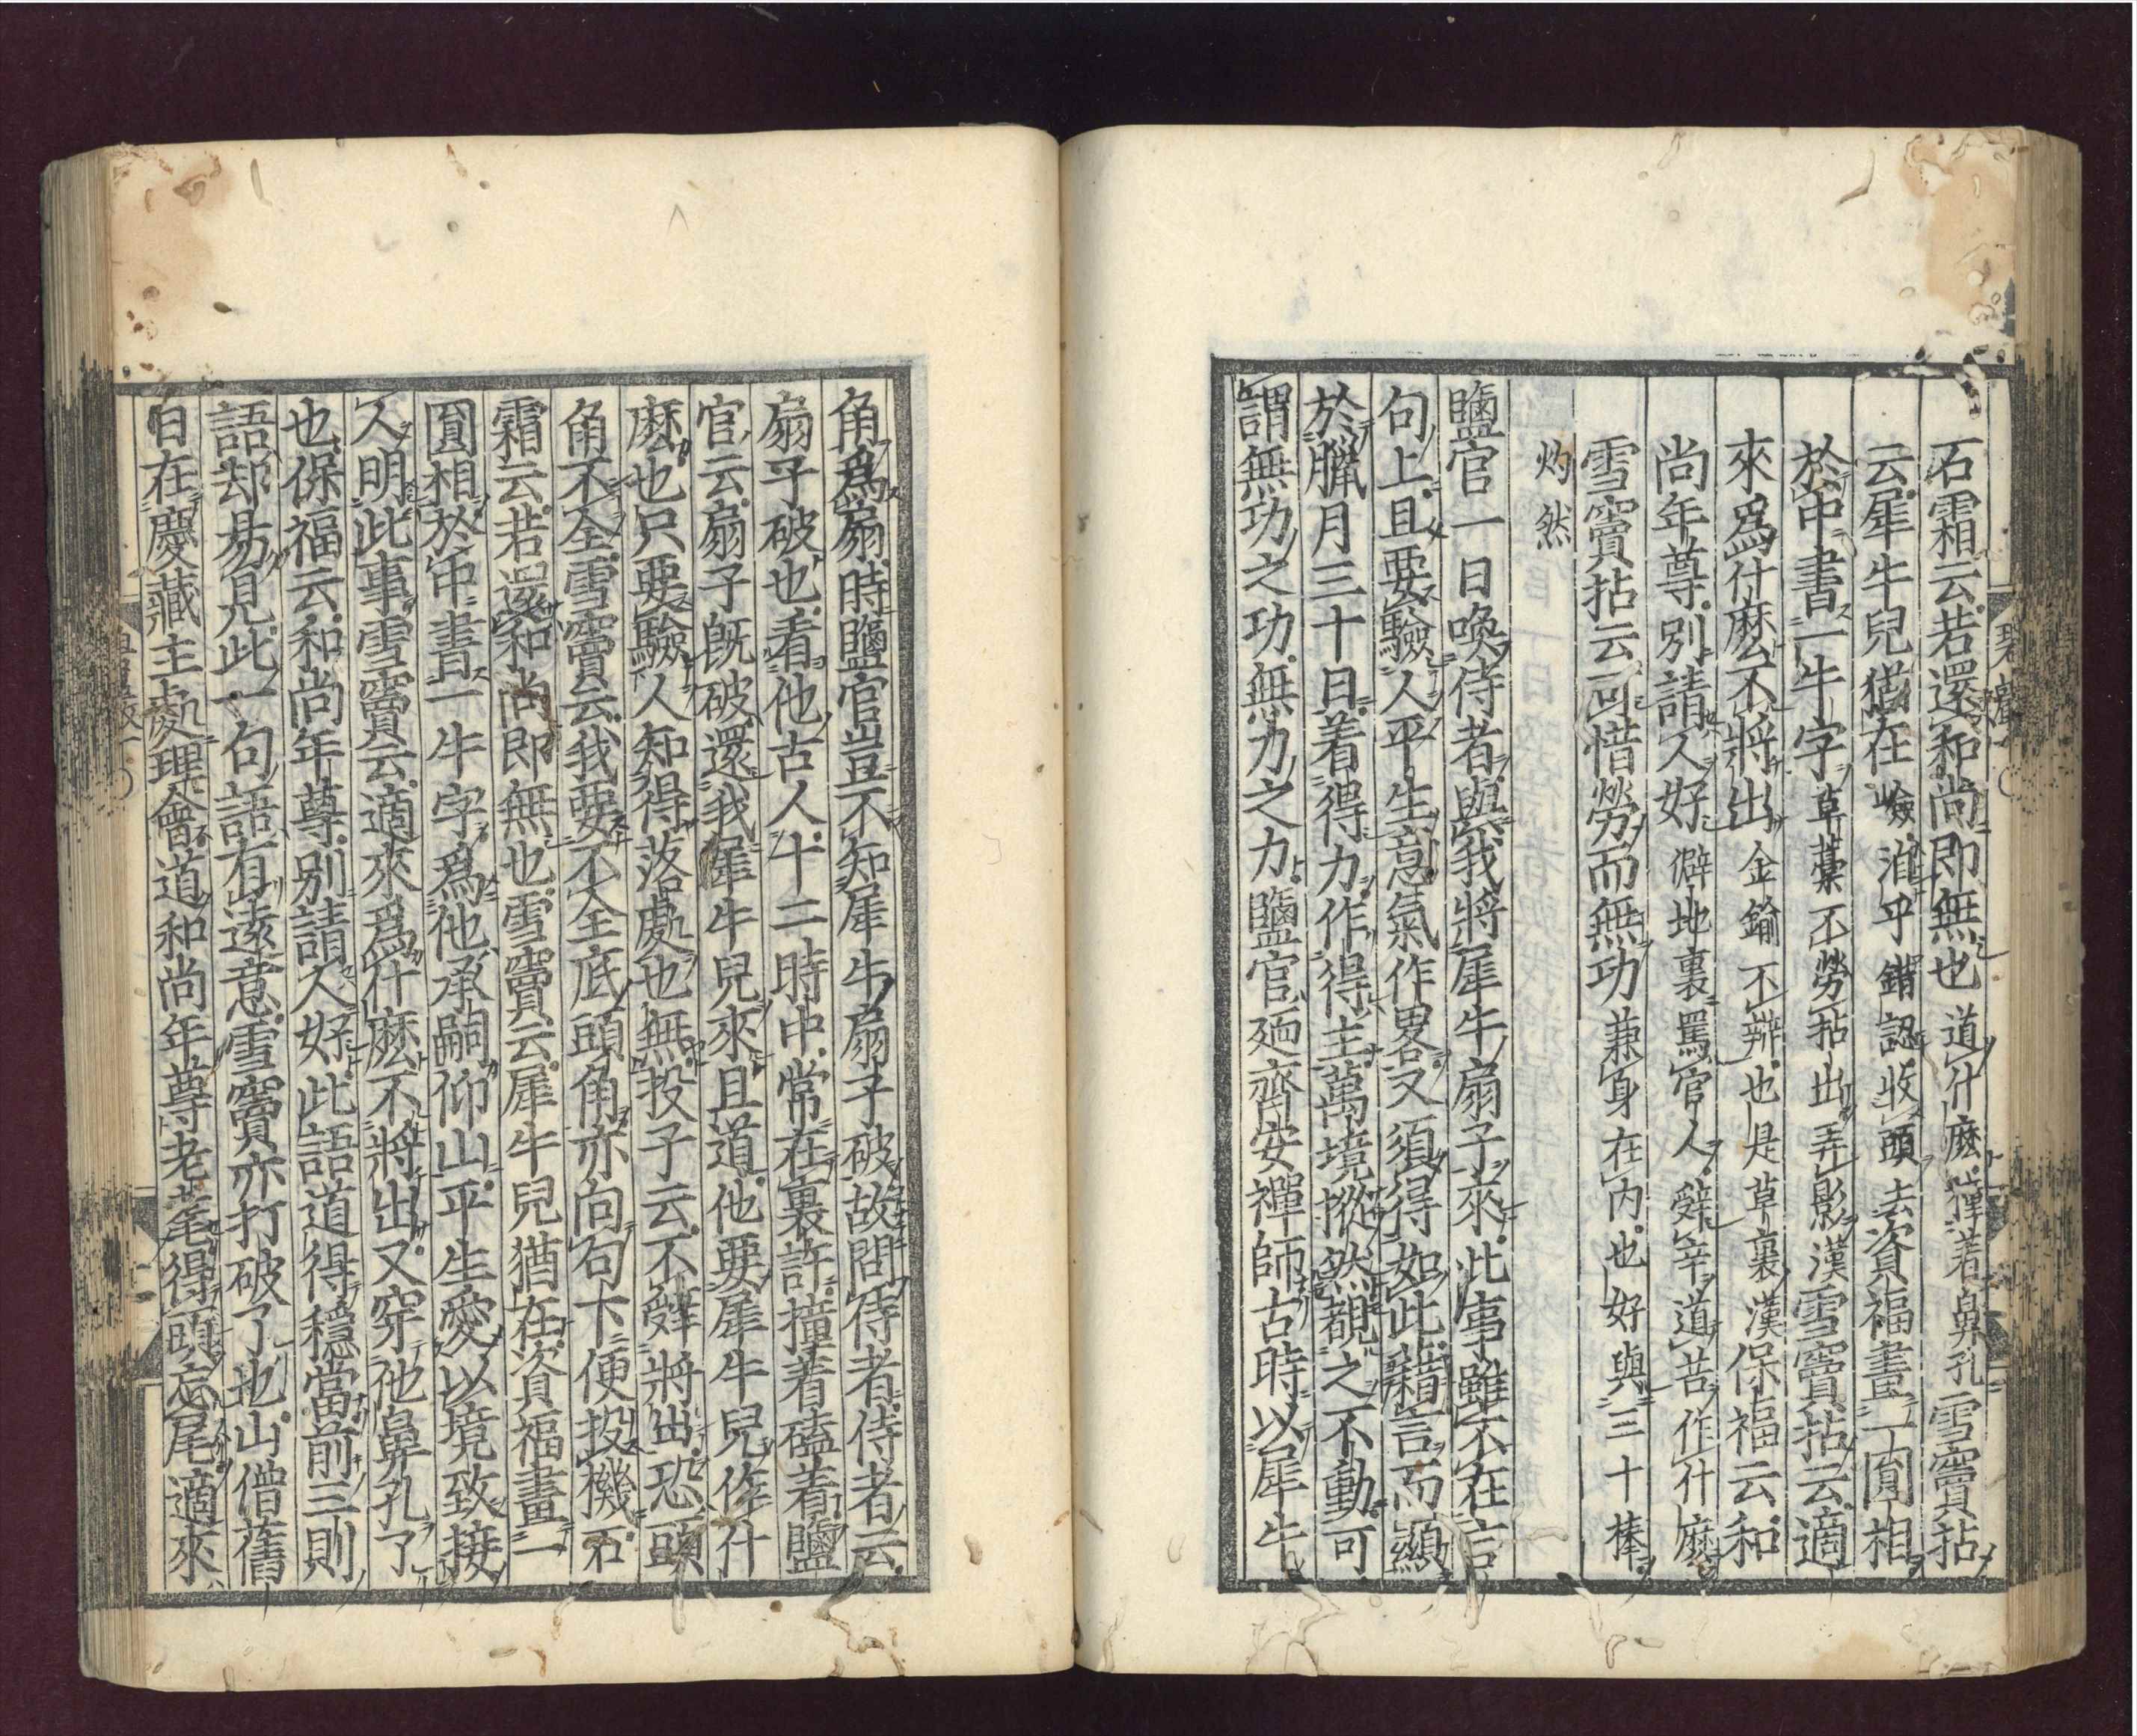 石霜云若還和尚即無也道什麽撞著鼻孔雪竇拈
云犀牛兒猶在嶮洎乎錯認收頭去資福畫一圓相
於中書一牛字草藁不勞拈出弄影漢雪竇拈云適
來爲什麽不將出金鍮不辨也是草裏漢保福云和
尚年尊別請人好僻地裏罵官人辤辛道苦作什麽
雪竇拈云可惜勞而無功兼身在内也好與三十棒
灼然
鹽官一日喚侍者與我將犀牛扇子來此事雖不在言
句上且要驗人平生意氣作畧又須得如此藉言而顯
於臘月三十日着得力作得主萬境摐然覩之不動可
謂無功之功無力之力鹽官廼齊安禪師古時以犀牛
角爲扇時鹽官豈不知犀牛扇子破故問侍者侍者云
扇子破也看他古人十二時中常在裏許撞着磕着鹽
官云扇子既破還我犀牛兒來且道他要犀牛兒作什
麽也只要驗人知得落處也無投子云不辤將出恐頭
角不全雪竇云我要不全底頭角亦向句下便投機石
霜云若還和尚即無也雪竇云犀牛兒猶在資福畫一
圓相於中書一牛字爲他承嗣仰山平生愛以境致接
人明此事雪竇云適來爲什麽不將出又穿他鼻孔了
也保福云和尚年尊別請人好此語道得穩當前三則
語却易見此一句語有遠意雪竇亦打破了也山僧舊
日在慶藏主處理會道和尚年尊老耄得頭忘尾適來